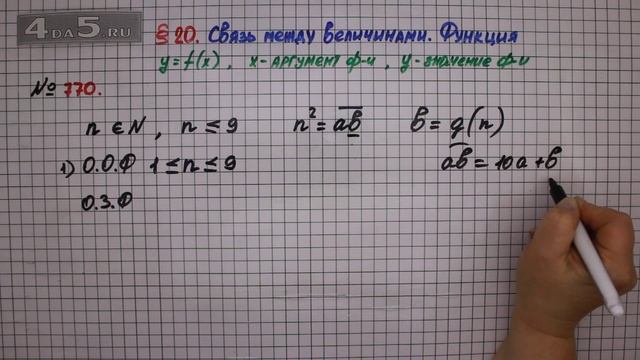 4DA5.RU
§ 20. Связь между величинами. Функция
y = f(x), x - аргумент ф-и, y - значение ф-и
№ 770.
n ∈ N, n ≤ 9 n² = \overline{ab} b = g(n)
1) О.О.Ф 1 ≤ n ≤ 9 \overline{ab} = 10a + b
О.З.Ф